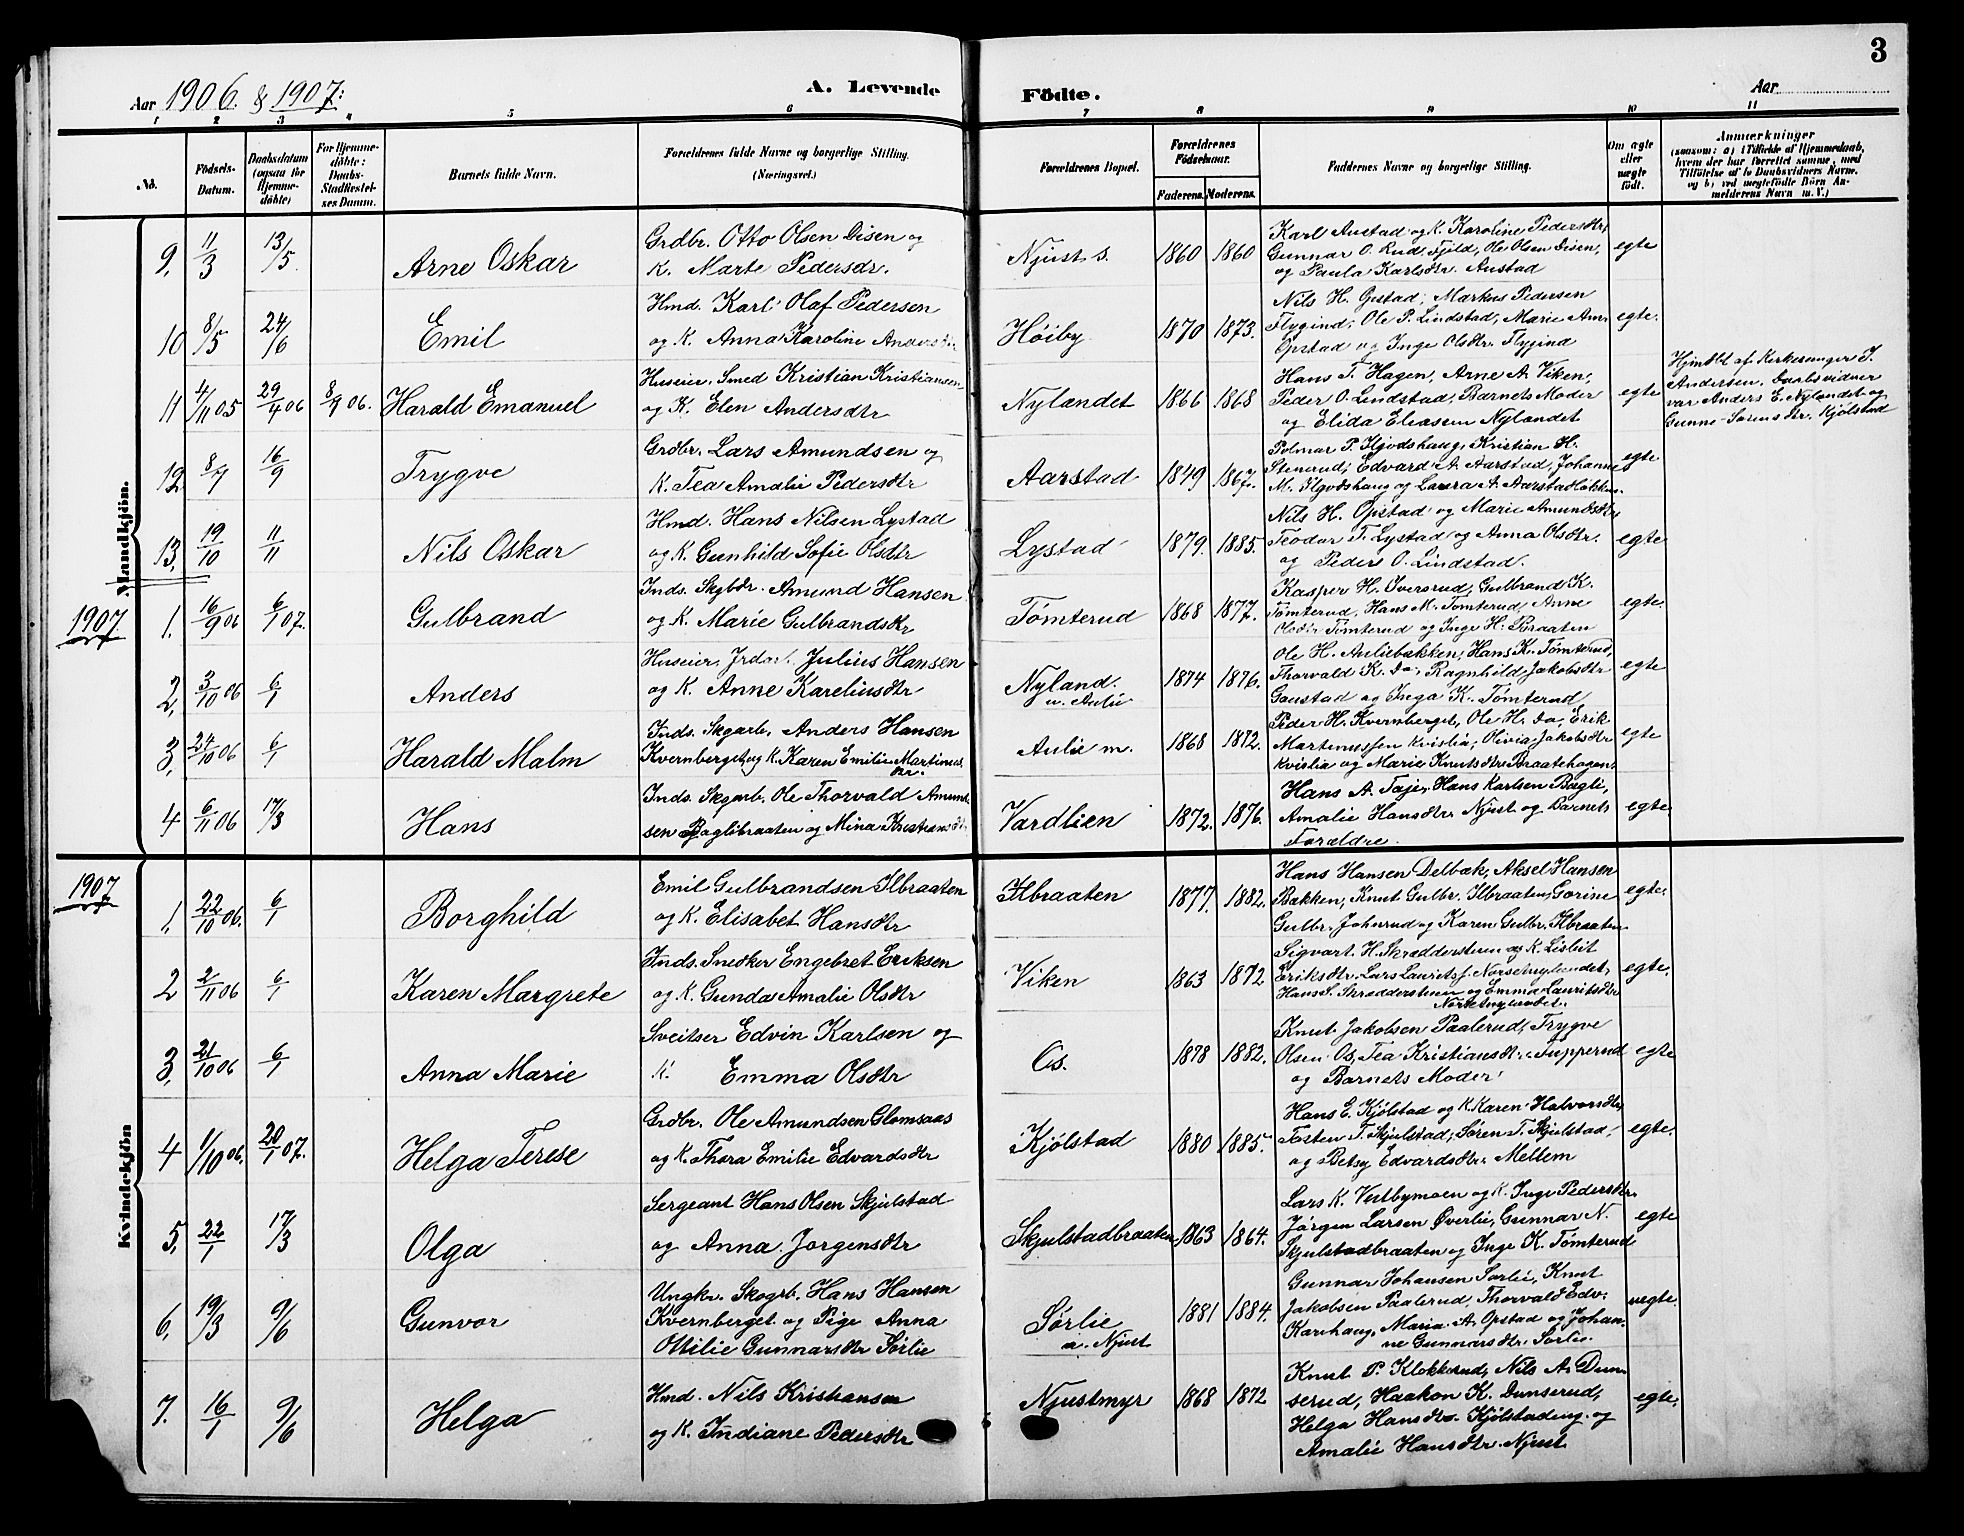 3
Aar 1906. & 1907:
A. Levende Fødte.
Aar
1 2 3 4 5 6 7 8 9 10 11
No.
Fødsels-Datum.
Daabsdatum (ogsaa for Hjemme-døbte)
For Hjemme-døbte: Daabs-Stadfæstel-ses Datum.
Barnets fulde Navn.
Forældrenes fulde Navne og borgerlige Stilling.
(Næringsvei.)
Forældrenes Bopæl.
Forældrenes Fødselsaar.
Faderens. Moderens.
Faddernes Navne og borgerlige Stilling.
Om ægte eller uægte født.
Anmærkninger
(saasom: a) i Tilfælde af Hjemmedaab, hvem der har forrettet samme, med Tilføielse af to Daabsvidners Navne. og b) ved uægtefødte Børn An-melderens Navn m. V.)
Mandkjøn.
9, 11/3 13/5 Arne Oskar
Grdbr. Otto Olsen Disen og
K. Marte Pedersdr.
Njust s. 1860 1860
Karl Austad og K. Karoline Pedersdtr,
Gunnar O. Rud, Fjeld, Ole Olsen Disen,
og Paula Karlsdtr. Austad
egte
10 8/5 24/6 Emil
Hmd. Karl Olaf Pedersen
og K. Anna Karoline Andersdtr
Høiby 1870 1873.
Nils H. Opstad, Markus Pedersen
Flygind, Ole P. Lindstad, Marie Am.
Opstad og Inge Olsdtr. Flygind
egte.
11 4/11 05 29/4 06 8/9 06. Harald Emanuel
Huseier, Smed Kristian Kristiansen
og K. Elen Andersdtr
Nylandet 1866 1868
Hans T. Hagen, Arne A. Viken,
Peder O. Lindstad, Barnets Moder
og Elida Eliasen Nylandet
egte
Hjmdbt af Kirkesanger J.
Andersen. Daabsvidner
var Anders E. Nylandet og
Gunne Sørensdtr. Kjølstad
12 8/7 16/9 Trygve
Grdbr. Lars Amundsen og
K. Tea Amalie Pedersdtr
Aarstad 1849 1867.
Stenrud, Edvard A. Aarstad, Johanne
egte
13, 19/10 11/11 Nils Oskar
Hmd. Hans Nilsen Lystad
og K. Gunhild Sofie Olsdtr
Lystad 1879. 1885.
Nils H. Opstad og Marie Amundsdtr
Teodor T. Lystad og Anna Olsdtr.
og Peders O. Lindstad.
egte
1907
1. 16/9 06 6/1 07. Gulbrand
Inds. Skgbdr. Amund Hansen
og K. Marie Gulbrandsdtr
Tømterud 1868 1877.
Kasper H. Iversrud, Gulbrand K.
Tømterud, Hans M. Tømterud, Anne
Olsdtr Tømterud og Inge H. Braaten
egte.
2, 3/10 06 6/1 Anders
Huseier, Jrdarb. Julius Hansen
og K. Anne Kareliusdtr
Nyland.
u. Aulie
1874 1876.
Ole H. Auliebakken, Hans K. Tømterud,
Thorvald K. do, Ragnhild Jakobsdtr
Gaustad og Inga K. Tømterud
egte
3, 24/10 06 6/1 Harald Malm
Inds. Skgarb. Anders Hansen
Kvernberget og K. Karen Emilie Martinus
dtr.
Aulie m. 1868 1872.
Peder H. Kvernberget, Ole H. do, Erik
Martinussen Kvislia, Olivia Jakobsdtr
Kvislia og Marie Knutsdtr. Braatehagen.
egte
4 6/11 06 17/3 Hans
Inds. Skgarb. Ole Thorvald Amund
sen Baglibraaten og Mina Kristiansdtr
Vardlien 1872. 1876.
Hans A. Taje, Hans Karlsen Bagli,
Amalie Hansdtr. Njust og Barnets
Forældre.
egte.
Kvindekjøn
1907
1, 22/10 06. 6/1 Borghild
Emil Gulbrandsen Ilbraaten
og K. Elisabet Hansdtr
Ilbraaten 1877. 1882.
Hans Hansen Delbæk, Aksel Hansen
Bakken, Knut Gulbr. Ilbraaten, Gorine
Gulbr. Johnrud og Karen Gulbr. Ilbraaten
egte.
2 2/11 06 6/1 Karen Margrete
Inds. Snedker Engebret Eriksen
og K. Gunda Amalie Olsdtr
Viken 1863 1872
Sigvart H. Skrædderstuen og K. Lisbet
Eriksdtr. Lars Lauritsf. Norsetnylandet,
Hans S. Skrædderstuen og Emma Lauritsdtr
Norsetnylandet.
egte.
3, 21/10 06 6/1 Anna Marie
Sveitser Edvin Karlsen og
K. Emma Olsdtr
Os. 1878 1882.
Knut Jakobsen Paalerud, Trygve
Olsen Os, Tea Kristiansdtr. Tupperud
og Barnets Moder
egte
4 1/10 06. 20/1 07. Helga Terese
Grdbr. Ole Amundsen Glomsaas
og K. Thora Emilie Edvardsdtr
Kjølstad 1880 1885.
Hans E. Kjølstad og K. Karen Halvorsdtr,
Tosten T. Skjulstad, Søren T. Skjulstad,
og Betsy Edvardsdtr. Mellem
egte.
5, 22/1 17/3 Olga
Sergeant Hans Olsen Skjulstad
og Anna Jørgensdtr
Skjulstadbraaten 1863 1864.
Lars K. Vestbymoen og K. Inge Pedersdtr.
Jørgen Larsen Øverlie, Gunnar N.
Skjulstadbraaten og Inge K. Tømterud
egte
6, 19/3 9/6 Gunvor
Ungkr. Skogrb. Hans Hansen
Kvernberget og Pige Anna
Otilie Gunnarsdtr Sørlie
Sørlie
u. Njust
1881 1884.
Gunnar Johansen Sørlie, Knut
Jakobsen Paalerud, Thorvald Edv.
Karihaug, Maria A. Opstad og Johan-
ne Gunnarsdtr. Sørlie.
uegte.
7. 16/1 9/6 Helga
Hmd. Nils Kristiansen
og K. Indiane Pedersdtr
Njustmyr 1868 1872
Knut P. Klokkerud, Nils A. Dun-
serud, Haakon K. Dunserud,
Helga Hansdtr. Kjølstadeng og
Amalie Hansdtr. Njust
egte.